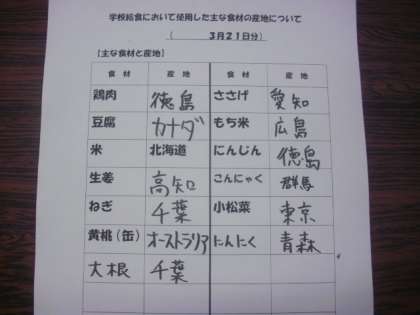 学校給食において使用した主な食材の産地について
( 3月21日分)
【主な食材と産地】
食材 産地 食材 産地
鶏肉 徳島 ささげ 愛知
豆腐 カナダ もち米 広島
米 北海道 にんじん 徳島
生姜 高知 こんにゃく 群馬
ねぎ 千葉 小松菜 東京
黄桃(缶) オーストラリア にんにく 青森
大根 千葉